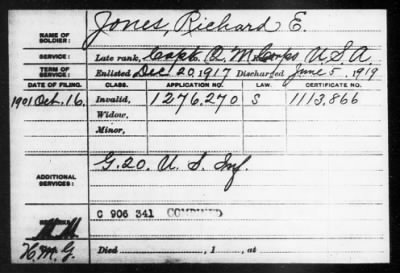 NAME OF SOLDIER: Jones, Richard E.
SERVICE: Late rank, Capt. Q. M. Corps U.S.A
TERM OF SERVICE: Enlisted Dec. 20, 1917 Discharged June 5, 1919
DATE OF FILING. CLASS. APPLICATION NO. LAW. CERTIFICATE NO.
1901 Oct. 16, Invalid, 1276,270 S 1113,866
Widow,
Minor,
ADDITIONAL SERVICES: G. 20. U. S. Inf.
C 906 341 COMBINED
H. M. G.
Died , 1 , at